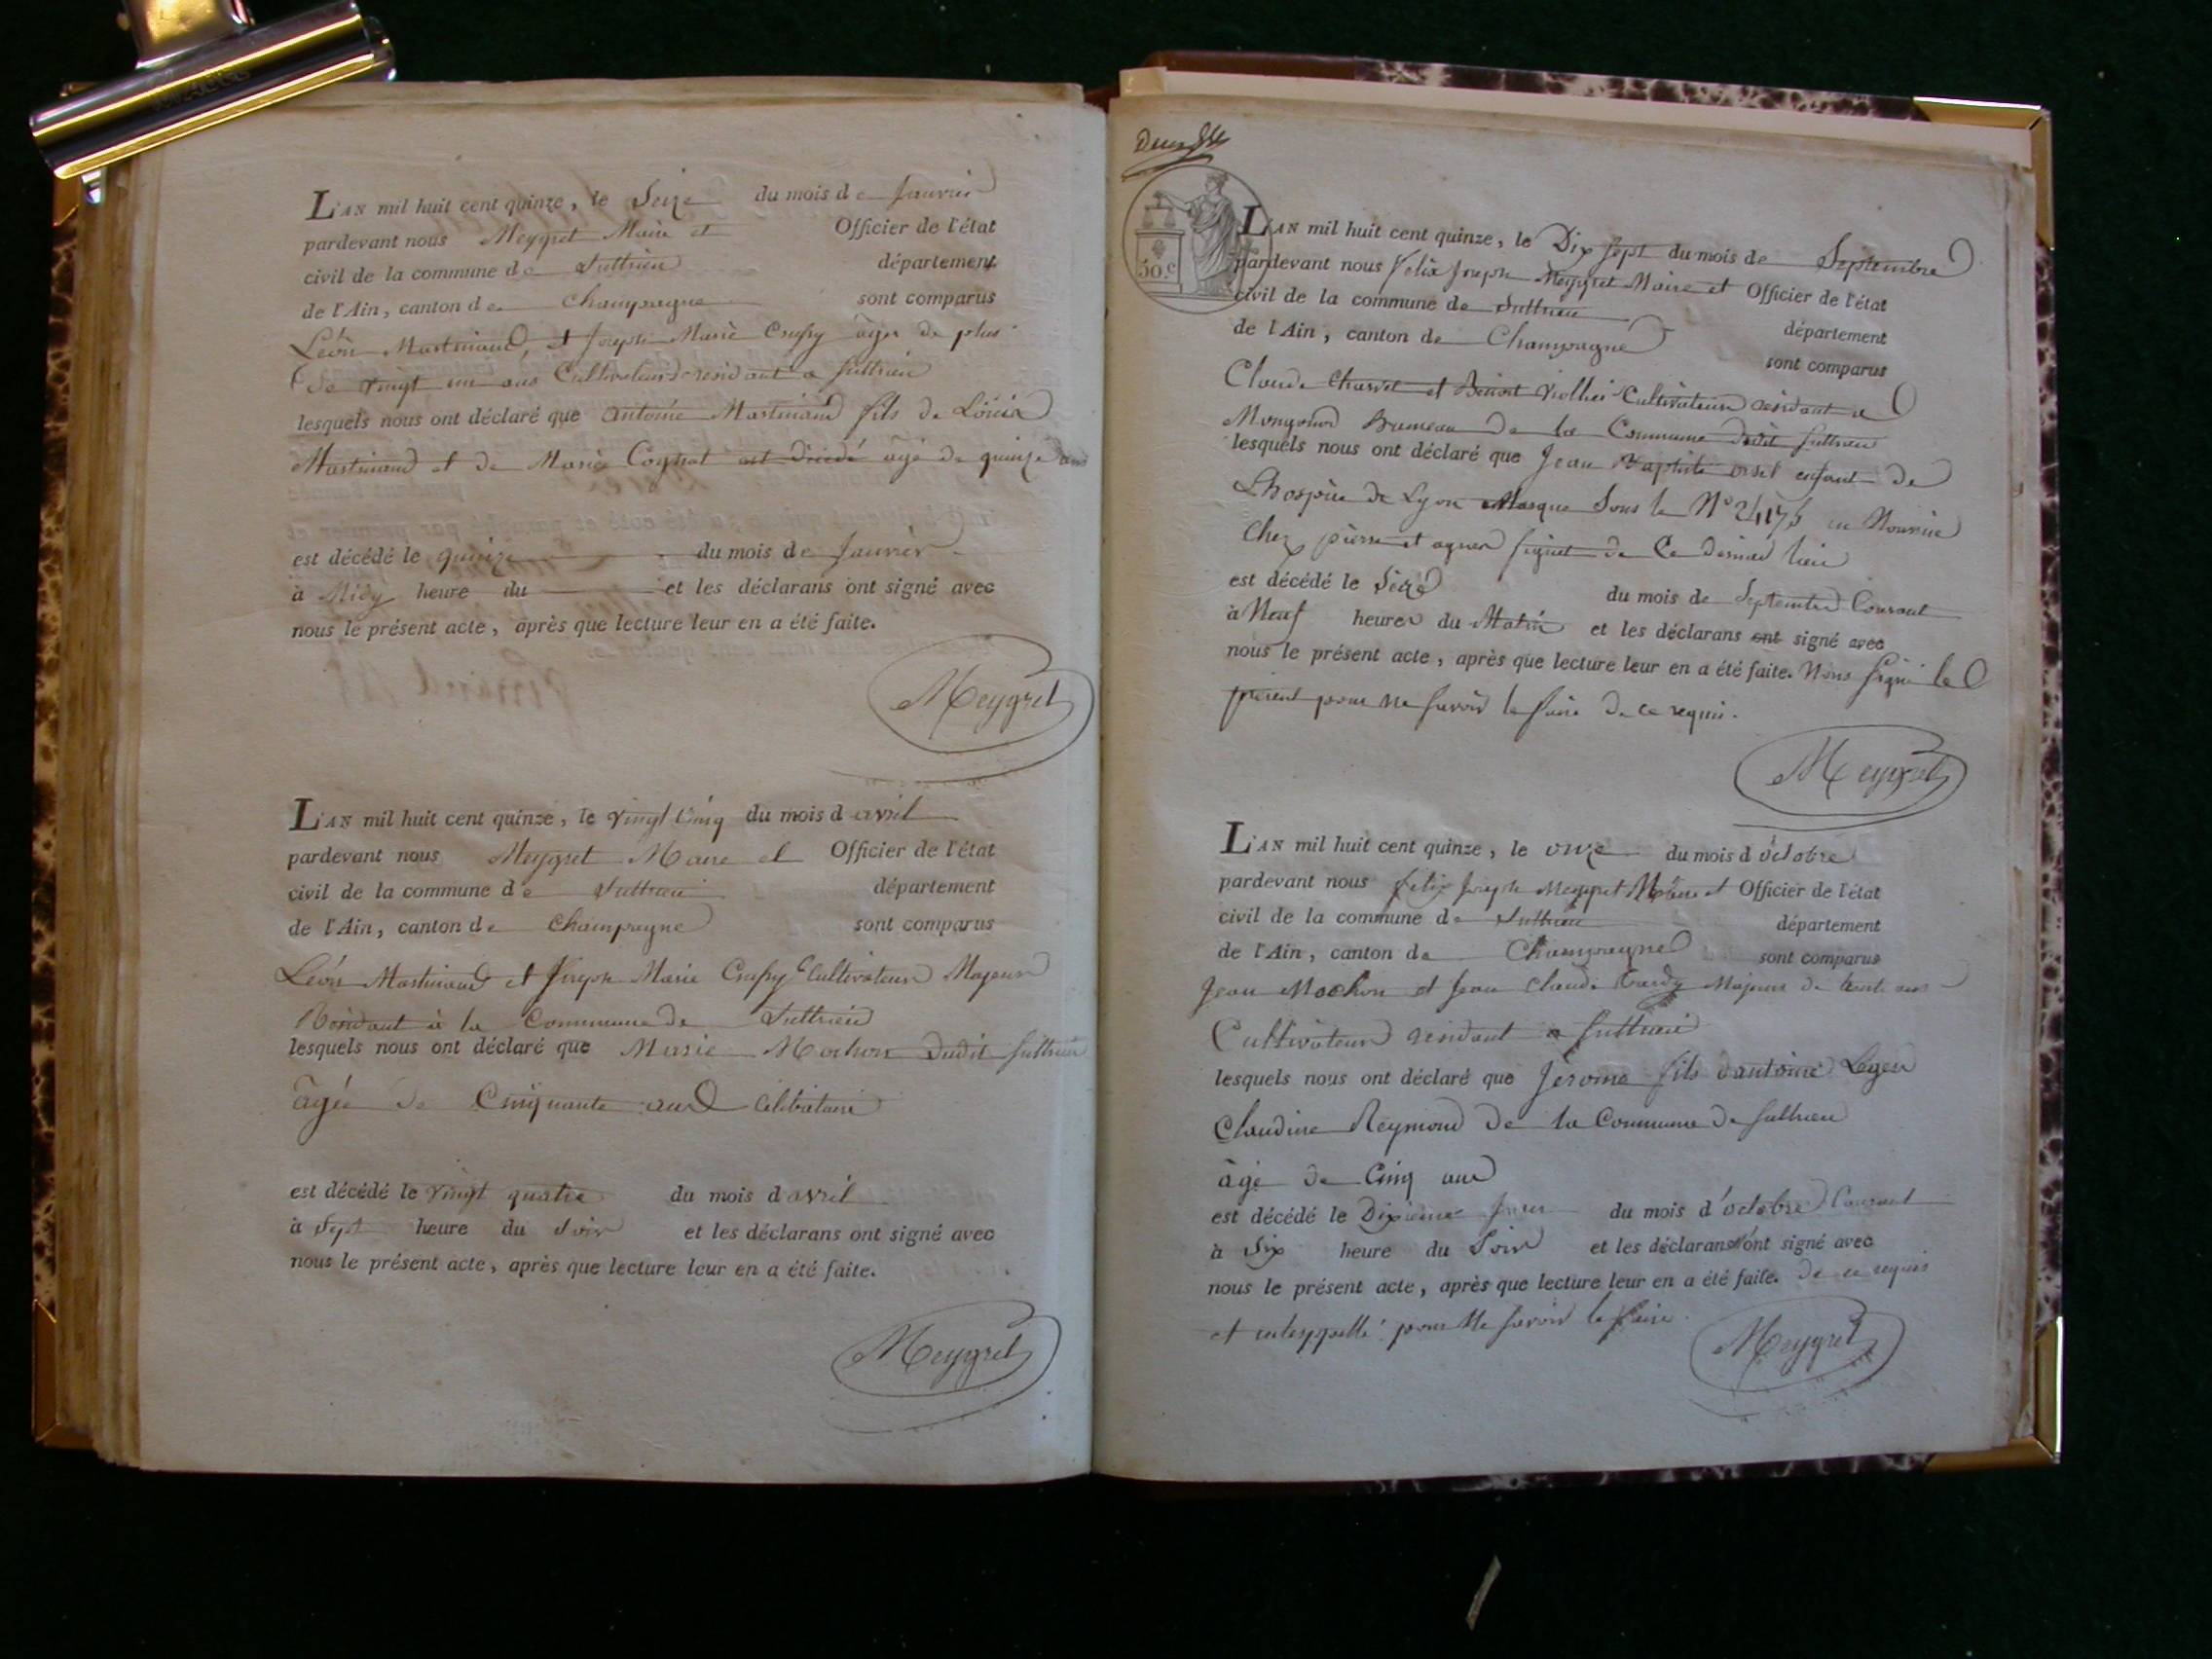 L'AN mil huit cent quinze, le Seize du mois de Janvier
pardevant nous Meygret Maire et Officier de l'état
civil de la commune de Suttrieu département
de l'Ain, canton de Champagne sont comparus
Léon Martinand, et Joseph Marie Crussy âges de plus
de vingt un ans Cultivateurs residant a Suttrieu
lesquels nous ont déclaré que antoine Martinand fils de
Martinand et de Marie Cognat est décédé agé de quinze ans
est décédé le quinze du mois de Janvier
à Midy heure du et les déclarans ont signé avec
nous le présent acte, après que lecture leur en a été faite.
Meygret
L'AN mil huit cent quinze, le vingt cinq du mois d avril
pardevant nous Meygret Maire et Officier de l'état
civil de la commune de Suttrieu département
de l'Ain, canton de Champagne sont comparus
Léon Martinand et Joseph Marie Crussy Cultivateurs Majeurs
Residant à la Commune de Suttrieu
lesquels nous ont déclaré que Marie Mochon dudit Suttrieu
âgée de Cinquante ans Célibataire
est décédé le vingt quatre du mois d avril
à Sept heure du Soir et les déclarans ont signé avec
nous le présent acte, après que lecture leur en a été faite.
Meygret
50 c
L'AN mil huit cent quinze, le Dix Sept du mois de Septembre
pardevant nous Felix Joseph Meygret Maire et Officier de l'état
civil de la commune de Suttrieu
département
de l'Ain, canton de Champagne
sont comparus
Claude Charvet et Benoit Viollet Cultivateurs residant a
Mongonod hameau de la Commune dudit Suttrieu
lesquels nous ont déclaré que Jean Baptiste orsel enfant de
Lhospice de Lyon Marque Sous le N° en Nourrice
Chez pierre et agnes de Ce dernier lieu
est décédé le Seize du mois de Septembre Courant
à Neuf heures du Matin et les déclarans ont signé avec
nous le présent acte, après que lecture leur en a été faite. Nons Signé le
présent pour ne Savoir le faire de ce requis.
Meygret
L'AN mil huit cent quinze, le onze du mois d'octobre
pardevant nous felix Joseph Meygret Maire et Officier de l'état
civil de la commune de Suttrieu département
de l'Ain, canton de Champagne sont comparus
Jean Mochon et Jean Claude Tardy Majeurs de trente ans
Cultivateurs residant a Suttrieu
lesquels nous ont déclaré que Jérome fils dantoine
Claudine Reymond de la Commune de Suttrieu
âgé de Cinq ans
est décédé le Dixieme Jour du mois d'octobre Courant
à Six heure du Soir et les déclarans n'ont signé avec
nous le présent acte, après que lecture leur en a été faite. de ce requis
et interpellé pour Ne Savoir le faire.
Meygret